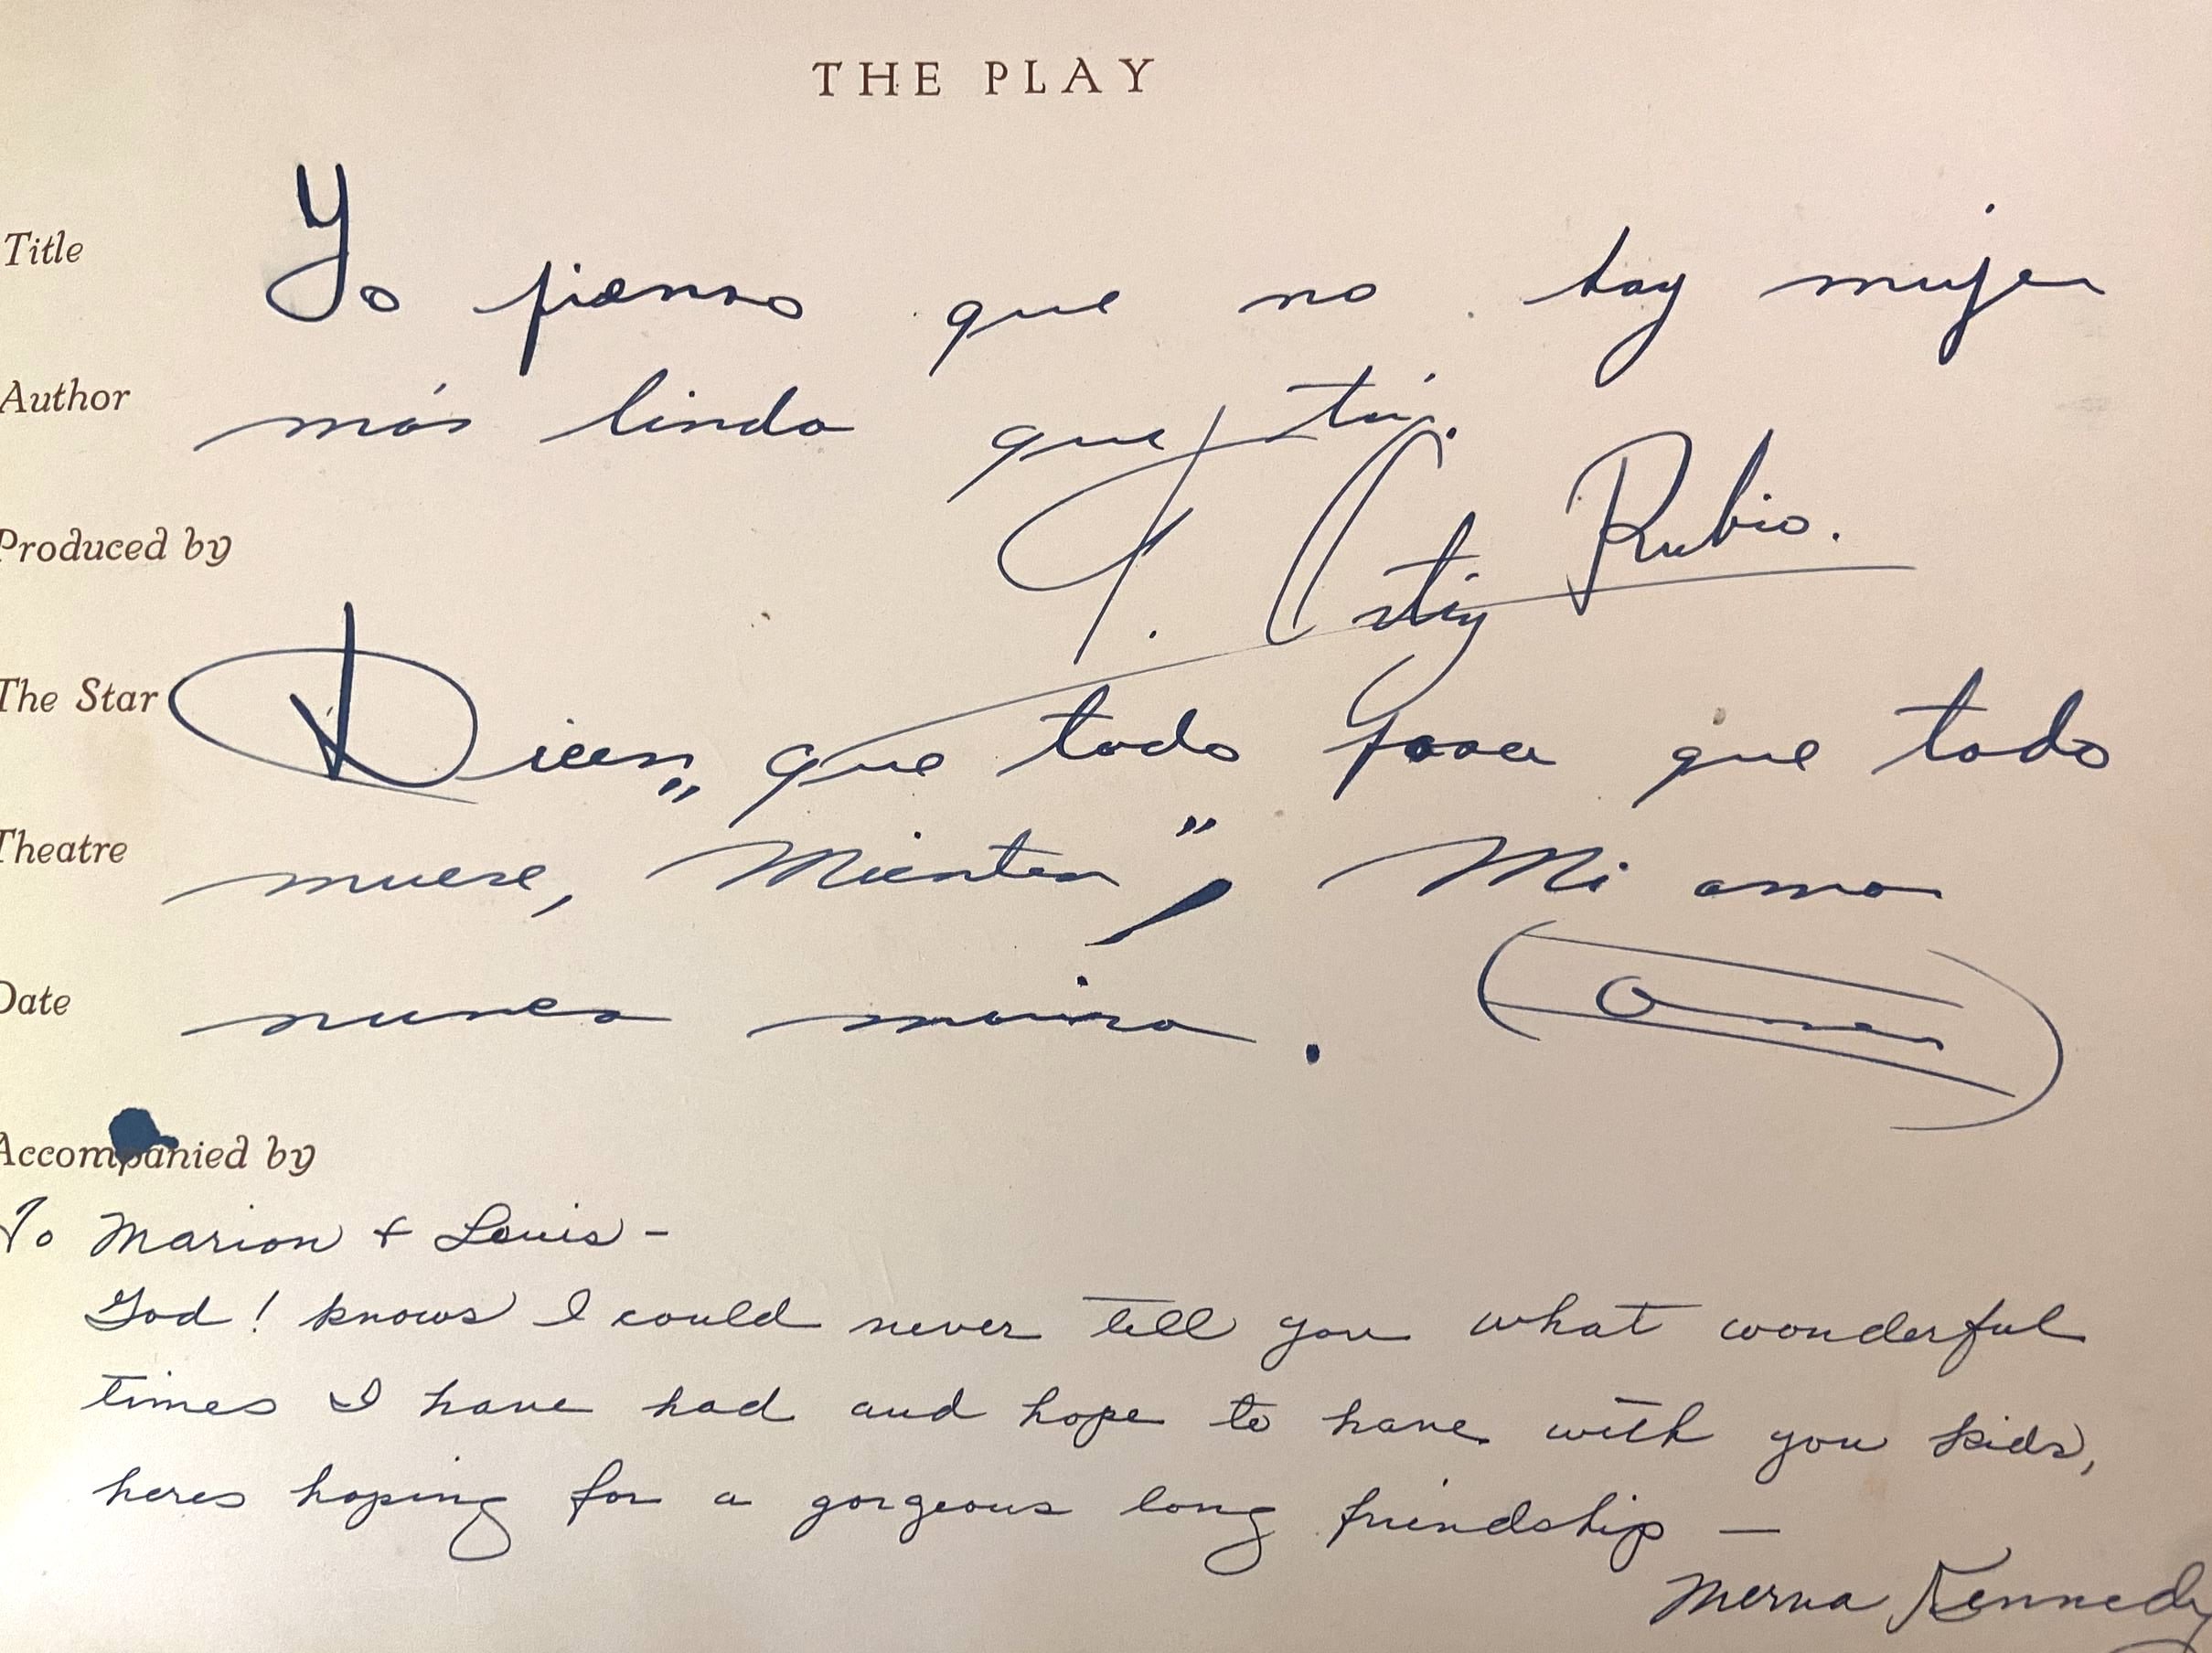 THE PLAY
Title
Yo pienso que no hay mujer
Author
más linda que tú.
Produced by
Ortiz Rubio.
The Star
Dicen „ que todo pasa que todo
Theatre
muere, Mienten”, Mi amor
Date
nunca morira.
Accompanied by
To Marion & Louis -
God! knows I could never tell you what wonderful
times I have had and hope to have with you kids,
heres hoping for a gorgeous long friendship —
Merna Kennedy